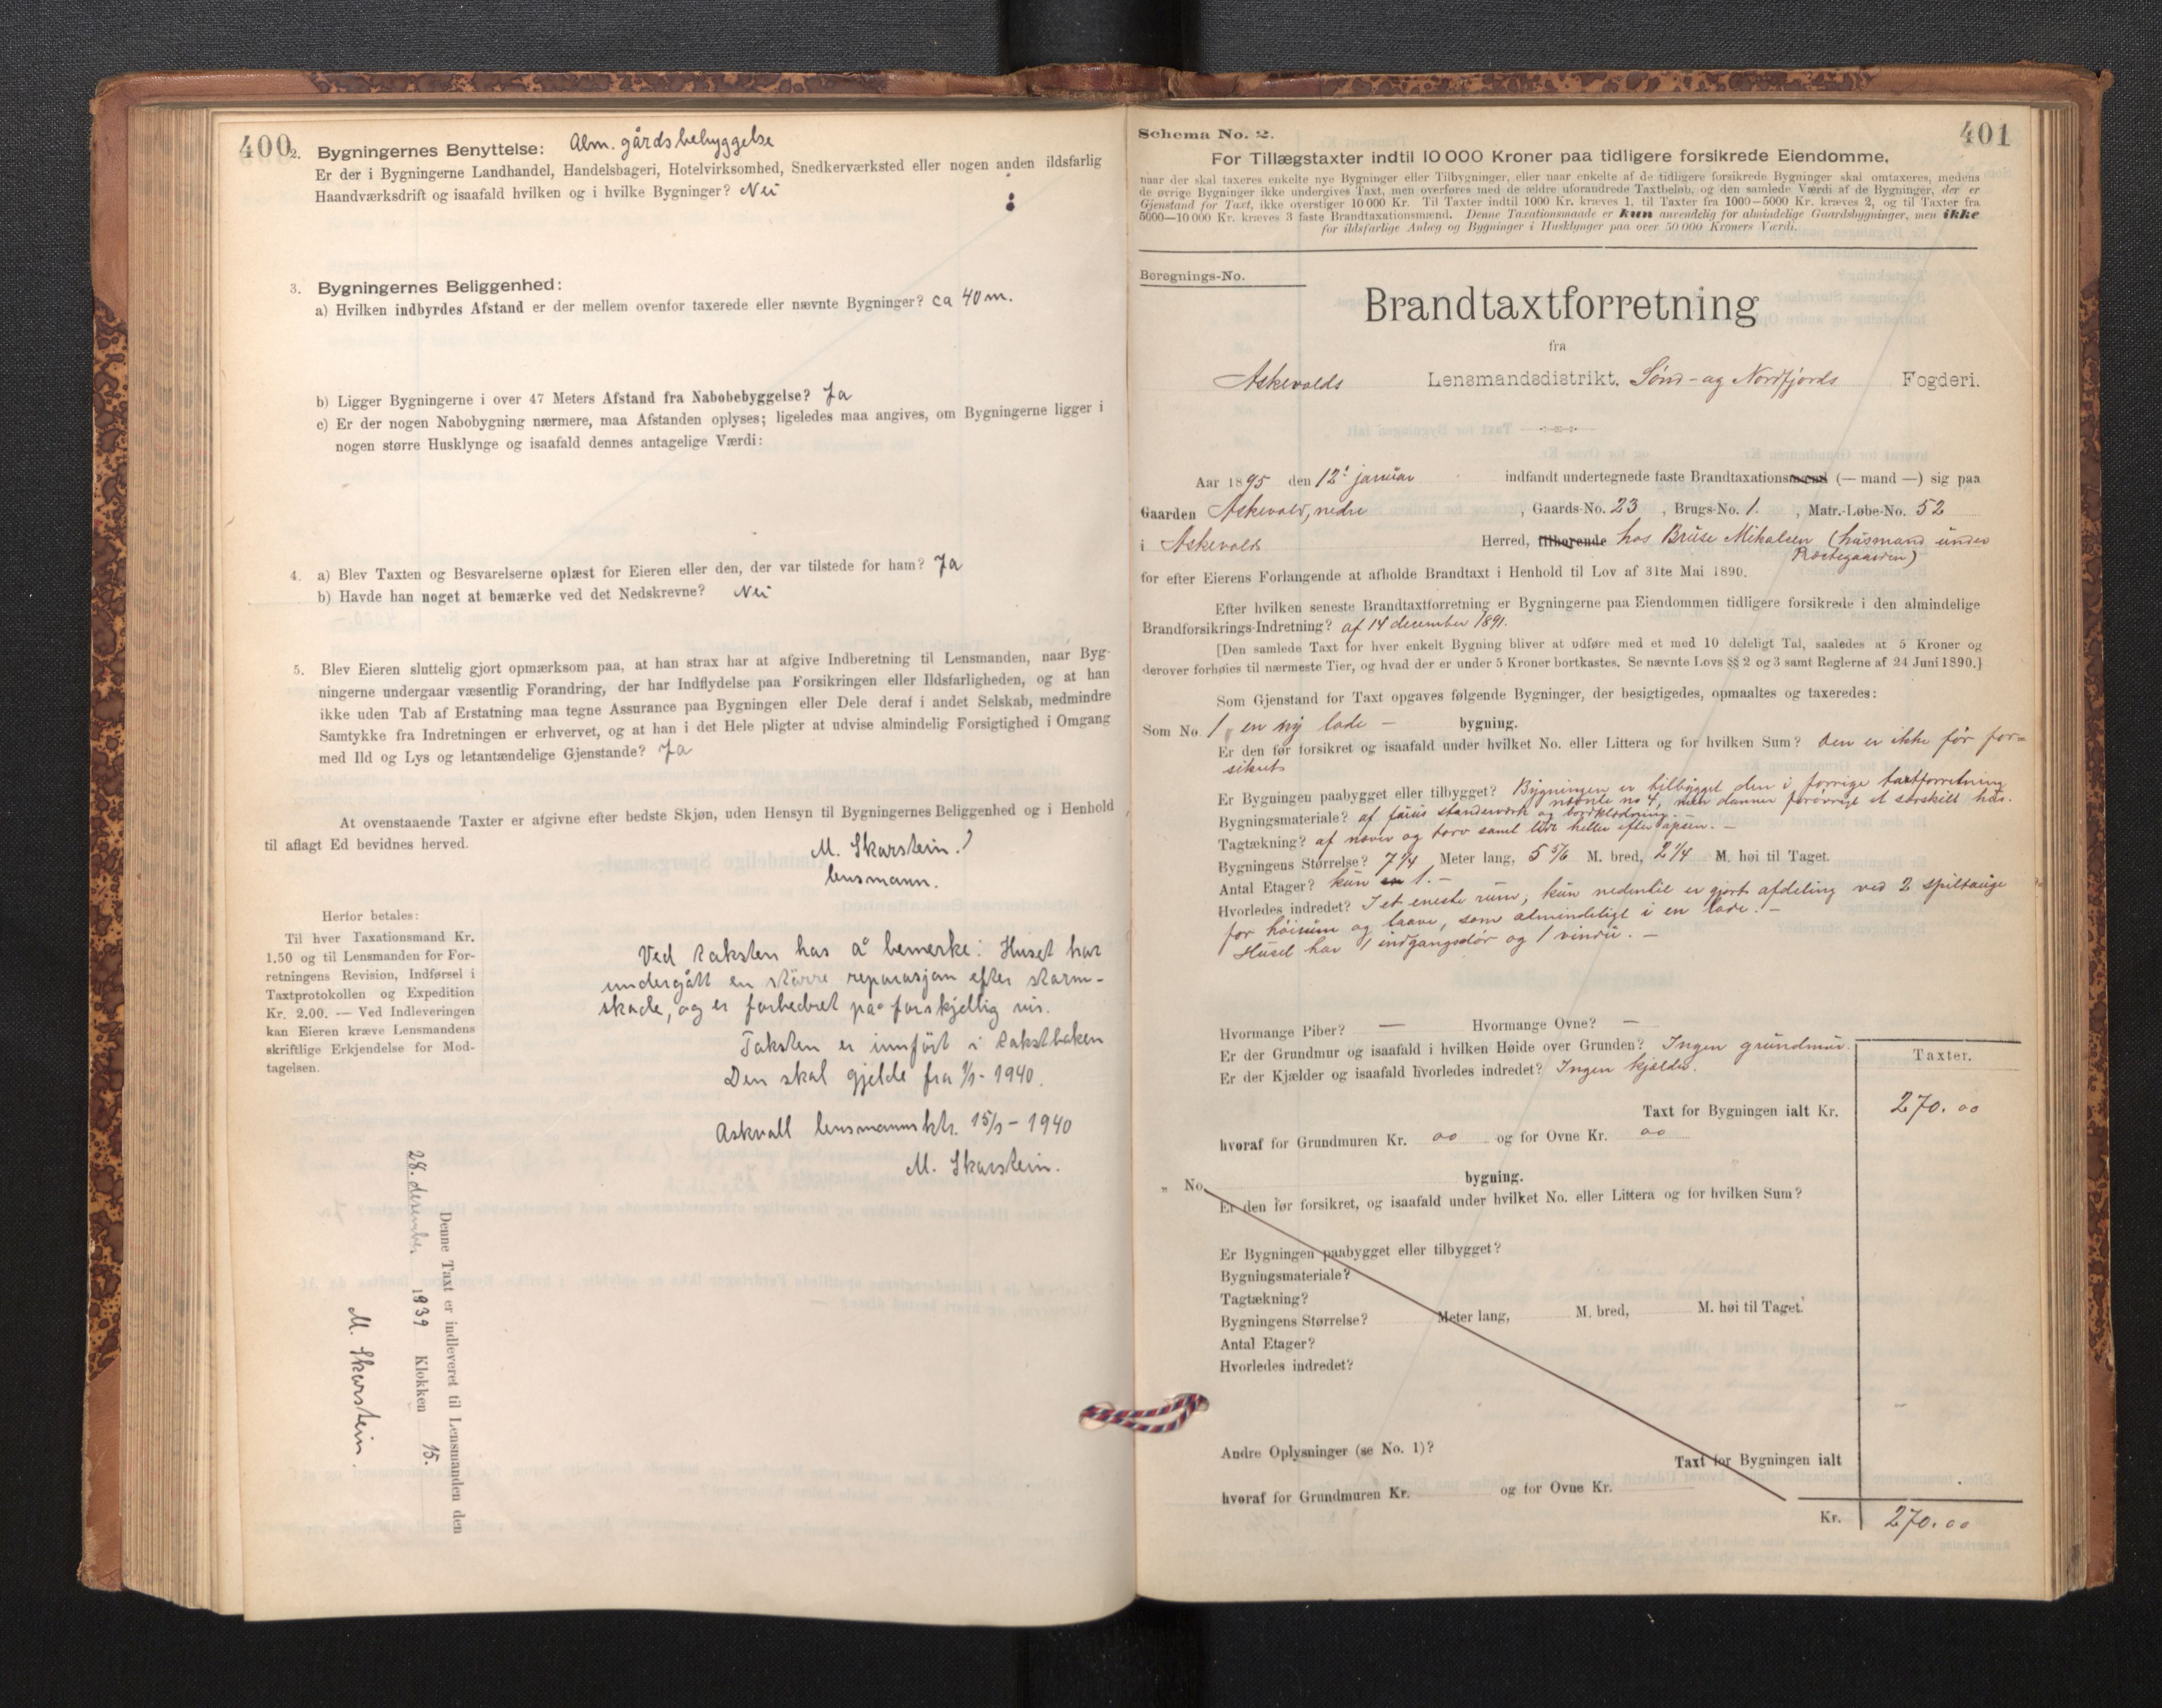 400
2. Bygningernes Benyttelse: Alm. gårdsbebyggelse
Er der i Bygningerne Landhandel, Handelsbageri, Hotelvirksomhed, Snedkerværksted eller nogen anden ildsfarlig
Haandværksdrift og isaafald hvilken og i hvilke Bygninger? Nei
3. Bygningernes Beliggenhed:
a) Hvilken indbyrdes Afstand er der mellem ovenfor taxerede eller nævnte Bygninger? ca 40 m.
b) Ligger Bygningerne i over 47 Meters Afstand fra Nabobebyggelse? Ja
c) Er der nogen Nabobygning nærmere, maa Afstanden oplyses; ligeledes maa angives, om Bygningerne ligger i
nogen større Husklynge og isaafald dennes antagelige Værdi:
4. a) Blev Taxten og Besvarelserne oplæst for Eieren eller den, der var tilstede for ham? Ja
b) Havde han noget at bemærke ved det Nedskrevne? Nei
5. Blev Eieren sluttelig gjort opmærksom paa, at han strax har at afgive Indberetning til Lensmanden, naar Byg-
ningerne undergaar væsentlig Forandring, der har Indflydelse paa Forsikringen eller Ildsfarligheden, og at han
ikke uden Tab af Erstatning maa tegne Assurance paa Bygningen eller Dele deraf i andet Selskab, medmindre
Samtykke fra Indretningen er erhvervet, og at han i det Hele pligter at udvise almindelig Forsigtighed i Omgang
med Ild og Lys og letantændelige Gjenstande? Ja
At ovenstaaende Taxter er afgivne efter bedste Skjøn, uden Hensyn til Bygningernes Beliggenhed og i Henhold
til aflagt Ed bevidnes herved.
M. Skarstein.
lensmann.
Herfor betales:
Til hver Taxationsmand Kr.
1.50 og til Lensmanden for For-
retningens Revision, Indførsel i
Taxtprotokollen og Expedition
Kr. 2.00. — Ved Indleveringen
kan Eieren kræve Lensmandens
skriftlige Erkjendelse for Mod-
tagelsen.
Ved taksten has å bemerke: Huset har
undergått en større reparasjon efter storm-
skade, og er forbedret på forskjellig vis.
Taksten er innført i takstboken
Den skal gjelde fra 1/1 - 1940.
Askvoll lensmannsktr. 15/1 - 1940
M. Skarstein.
Denne Taxt er indleveret til Lensmanden den
28. desember 1939 Klokken 15.
M. Skarstein.
Schema No. 2.
401
For Tillægstaxter indtil 10 000 Kroner paa tidligere forsikrede Eiendomme,
naar der skal taxeres enkelte nye Bygninger eller Tilbygninger, eller naar enkelte af de tidligere forsikrede Bygninger skal omtaxeres, medens
de øvrige Bygninger ikke undergives Taxt, men overføres med de ældre uforandrede Taxtbeløb, og den samlede Værdi af de Bygninger, der er
Gjenstand for Taxt, ikke overstiger 10 000 Kr. Til Taxter indtil 1000 Kr. kræves 1, til Taxter fra 1000—5000 Kr. kræves 2, og til Taxter fra
5000—10 000 Kr. kræves 3 faste Brandtaxationsmænd. Denne Taxationsmaade er kun anvendelig for almindelige Gaardsbygninger, men ikke
for ildsfarlige Anlæg og Bygninger i Husklynger paa over 50 000 Kroners Værdi.
Beregnings-No.
Brandtaxtforretning
fra
Askevolds Lensmandsdistrikt, Sønd- og Nordfjords Fogderi.
Aar 1895 den 12t januar indfandt undertegnede faste Brandtaxationsmænd (— mand —) sig paa
Gaarden Askevold, nedre, Gaards-No. 23, Brugs-No. 1., Matr.-Løbe-No. 52
i Askevold Herred, tilhørende hos Brüse Mikalsen (husmand under
Præstegaarden)
for efter Eierens Forlangende at afholde Brandtaxt i Henhold til Lov af 31te Mai 1890.
Efter hvilken seneste Brandtaxtforretning er Bygningerne paa Eiendommen tidligere forsikrede i den almindelige
Brandforsikrings-Indretning? af 14 december 1891.
[Den samlede Taxt for hver enkelt Bygning bliver at udføre med et med 10 deleligt Tal, saaledes at 5 Kroner og
derover forhøies til nærmeste Tier, og hvad der er under 5 Kroner bortkastes. Se nævnte Lovs §§ 2 og 3 samt Reglerne af 24 Juni 1890.]
Som Gjenstand for Taxt opgaves følgende Bygninger, der besigtigedes, opmaaltes og taxeredes:
Som No 1, en ny lade — bygning.
Er den før forsikret og isaafald under hvilket No. eller Littera og for hvilken Sum? Den er ikke før for-
sikret
Er Bygningen paabygget eller tilbygget? Bygningen er tilbygget den i forrige taxtforretning
nævnte no 4, men danner forøvrigt et særskilt hus.
Bygningsmateriale? af furus standerværk og bordklædning. —
Tagtækning? af næver og torv samt
Bygningens Størrelse? 7 1/4 Meter lang, 5 5/6 M. bred, 2 1/4 M. høi til Taget.
Antal Etager? kun 1. —
Hvorledes indredet? I et eneste rum, kun nedentil er gjort afdeling ved 2 spiltauge
for høirum og laave, som almindeligt i en lade. —
Huset har 1 indgangsdør og 1 vindu. —
Hvormange Piber? — Hvormange Ovne? —
Er der Grundmur og isaafald i hvilken Høide over Grunden? Ingen grundmur.
Er der Kjælder og isaafald hvorledes indredet? Ingen kjælder.
Taxter.
Taxt for Bygningen ialt Kr. 270.00
hvoraf for Grundmuren Kr. 00 og for Ovne Kr. 00
" No. bygning.
Er den før forsikret, og isaafald under hvilket No. eller Littera og for hvilken Sum?
Er Bygningen paabygget eller tilbygget?
Bygningsmateriale?
Tagtækning?
Bygningens Størrelse? Meter lang, M. bred, M. høi til Taget.
Antal Etager?
Hvorledes indredet?
Andre Oplysninger (se No. 1)?
Taxt for Bygningen ialt
hvoraf for Grundmuren Kr. og for Ovne Kr.
Kr. 270.00